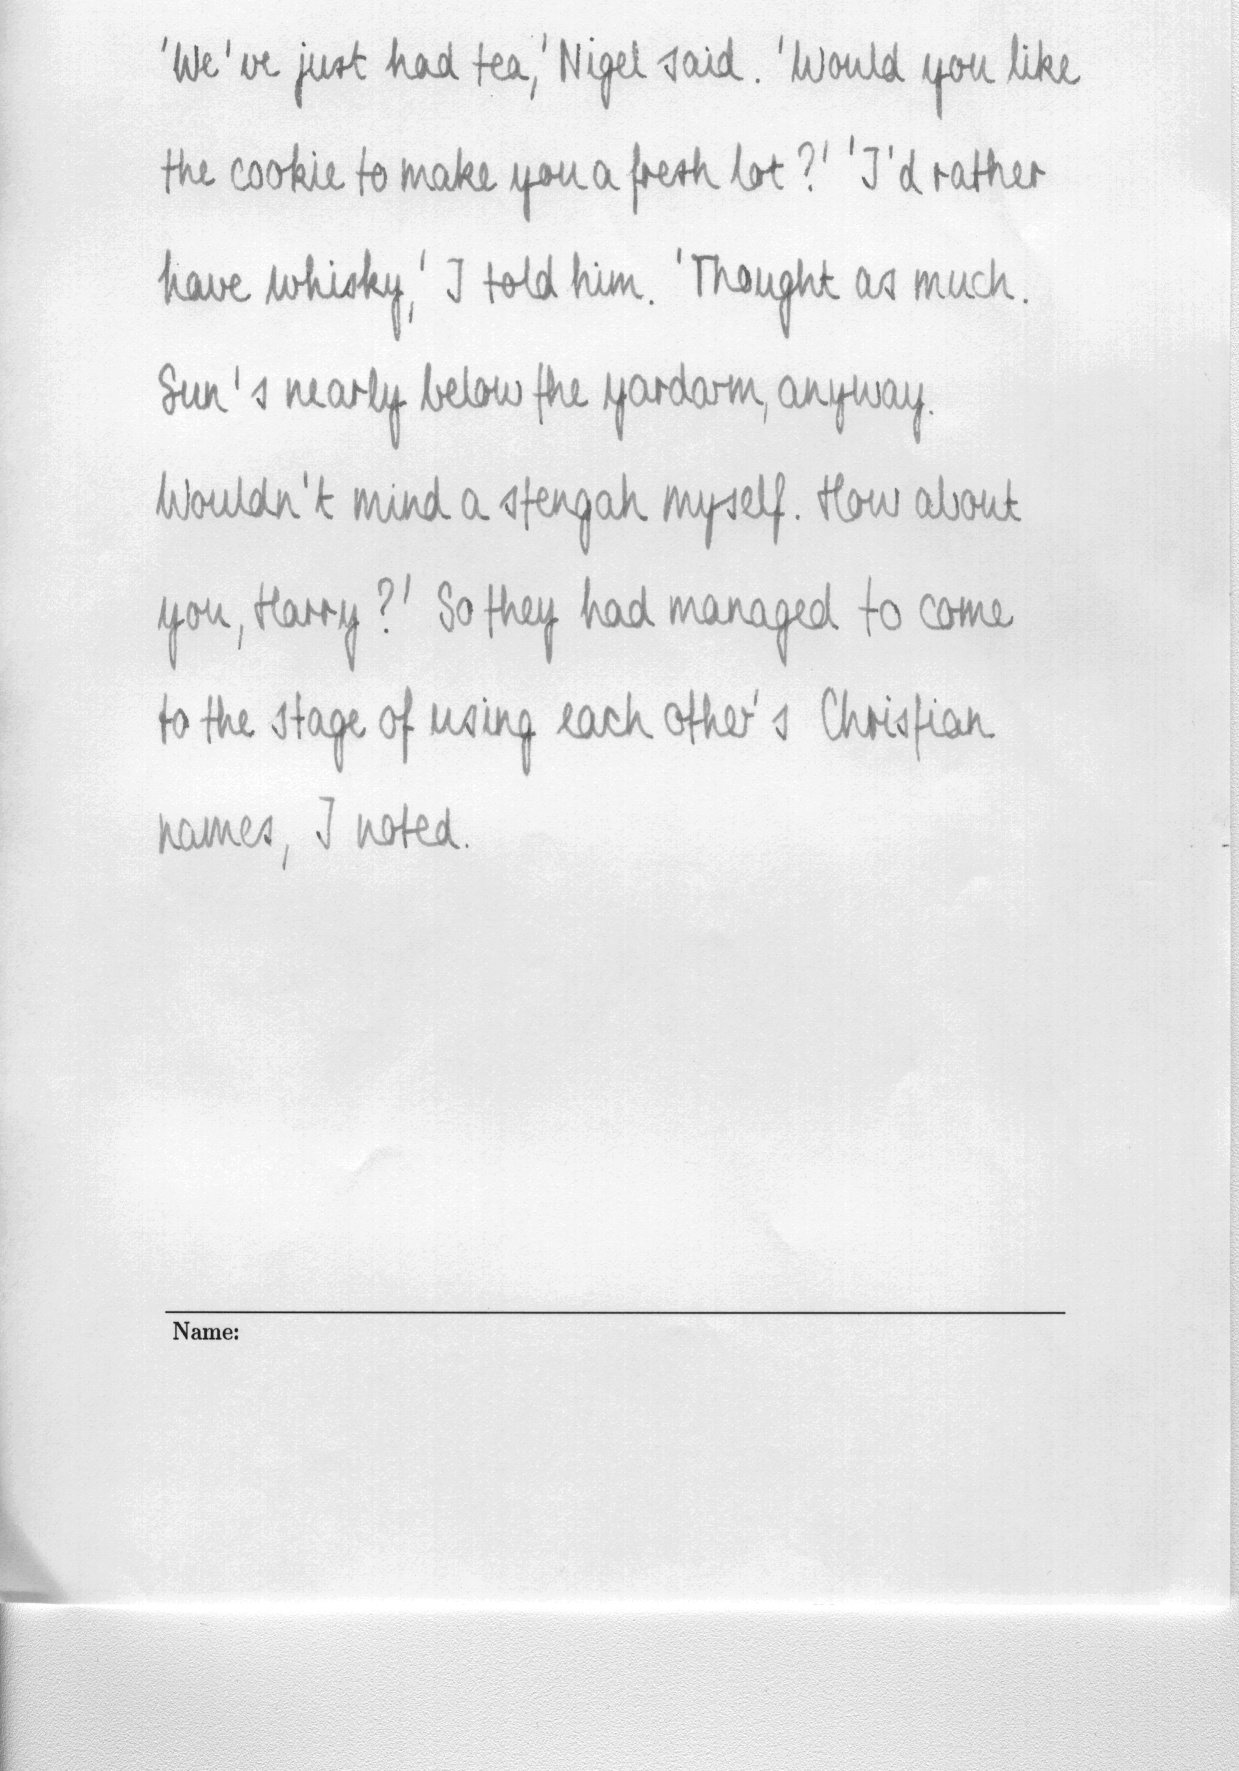 'We've just had tea,' Nigel said. 'Would you like
the cookie to make you a fresh lot?' 'I'd rather
have whisky,' I told him. 'Thought as much.
Sun's nearly below the yardarm, anyway.
Wouldn't mind a stengah myself. How about
you, Harry?' So they had managed to come
to the stage of using each other's Christian
names, I noted.
Name: